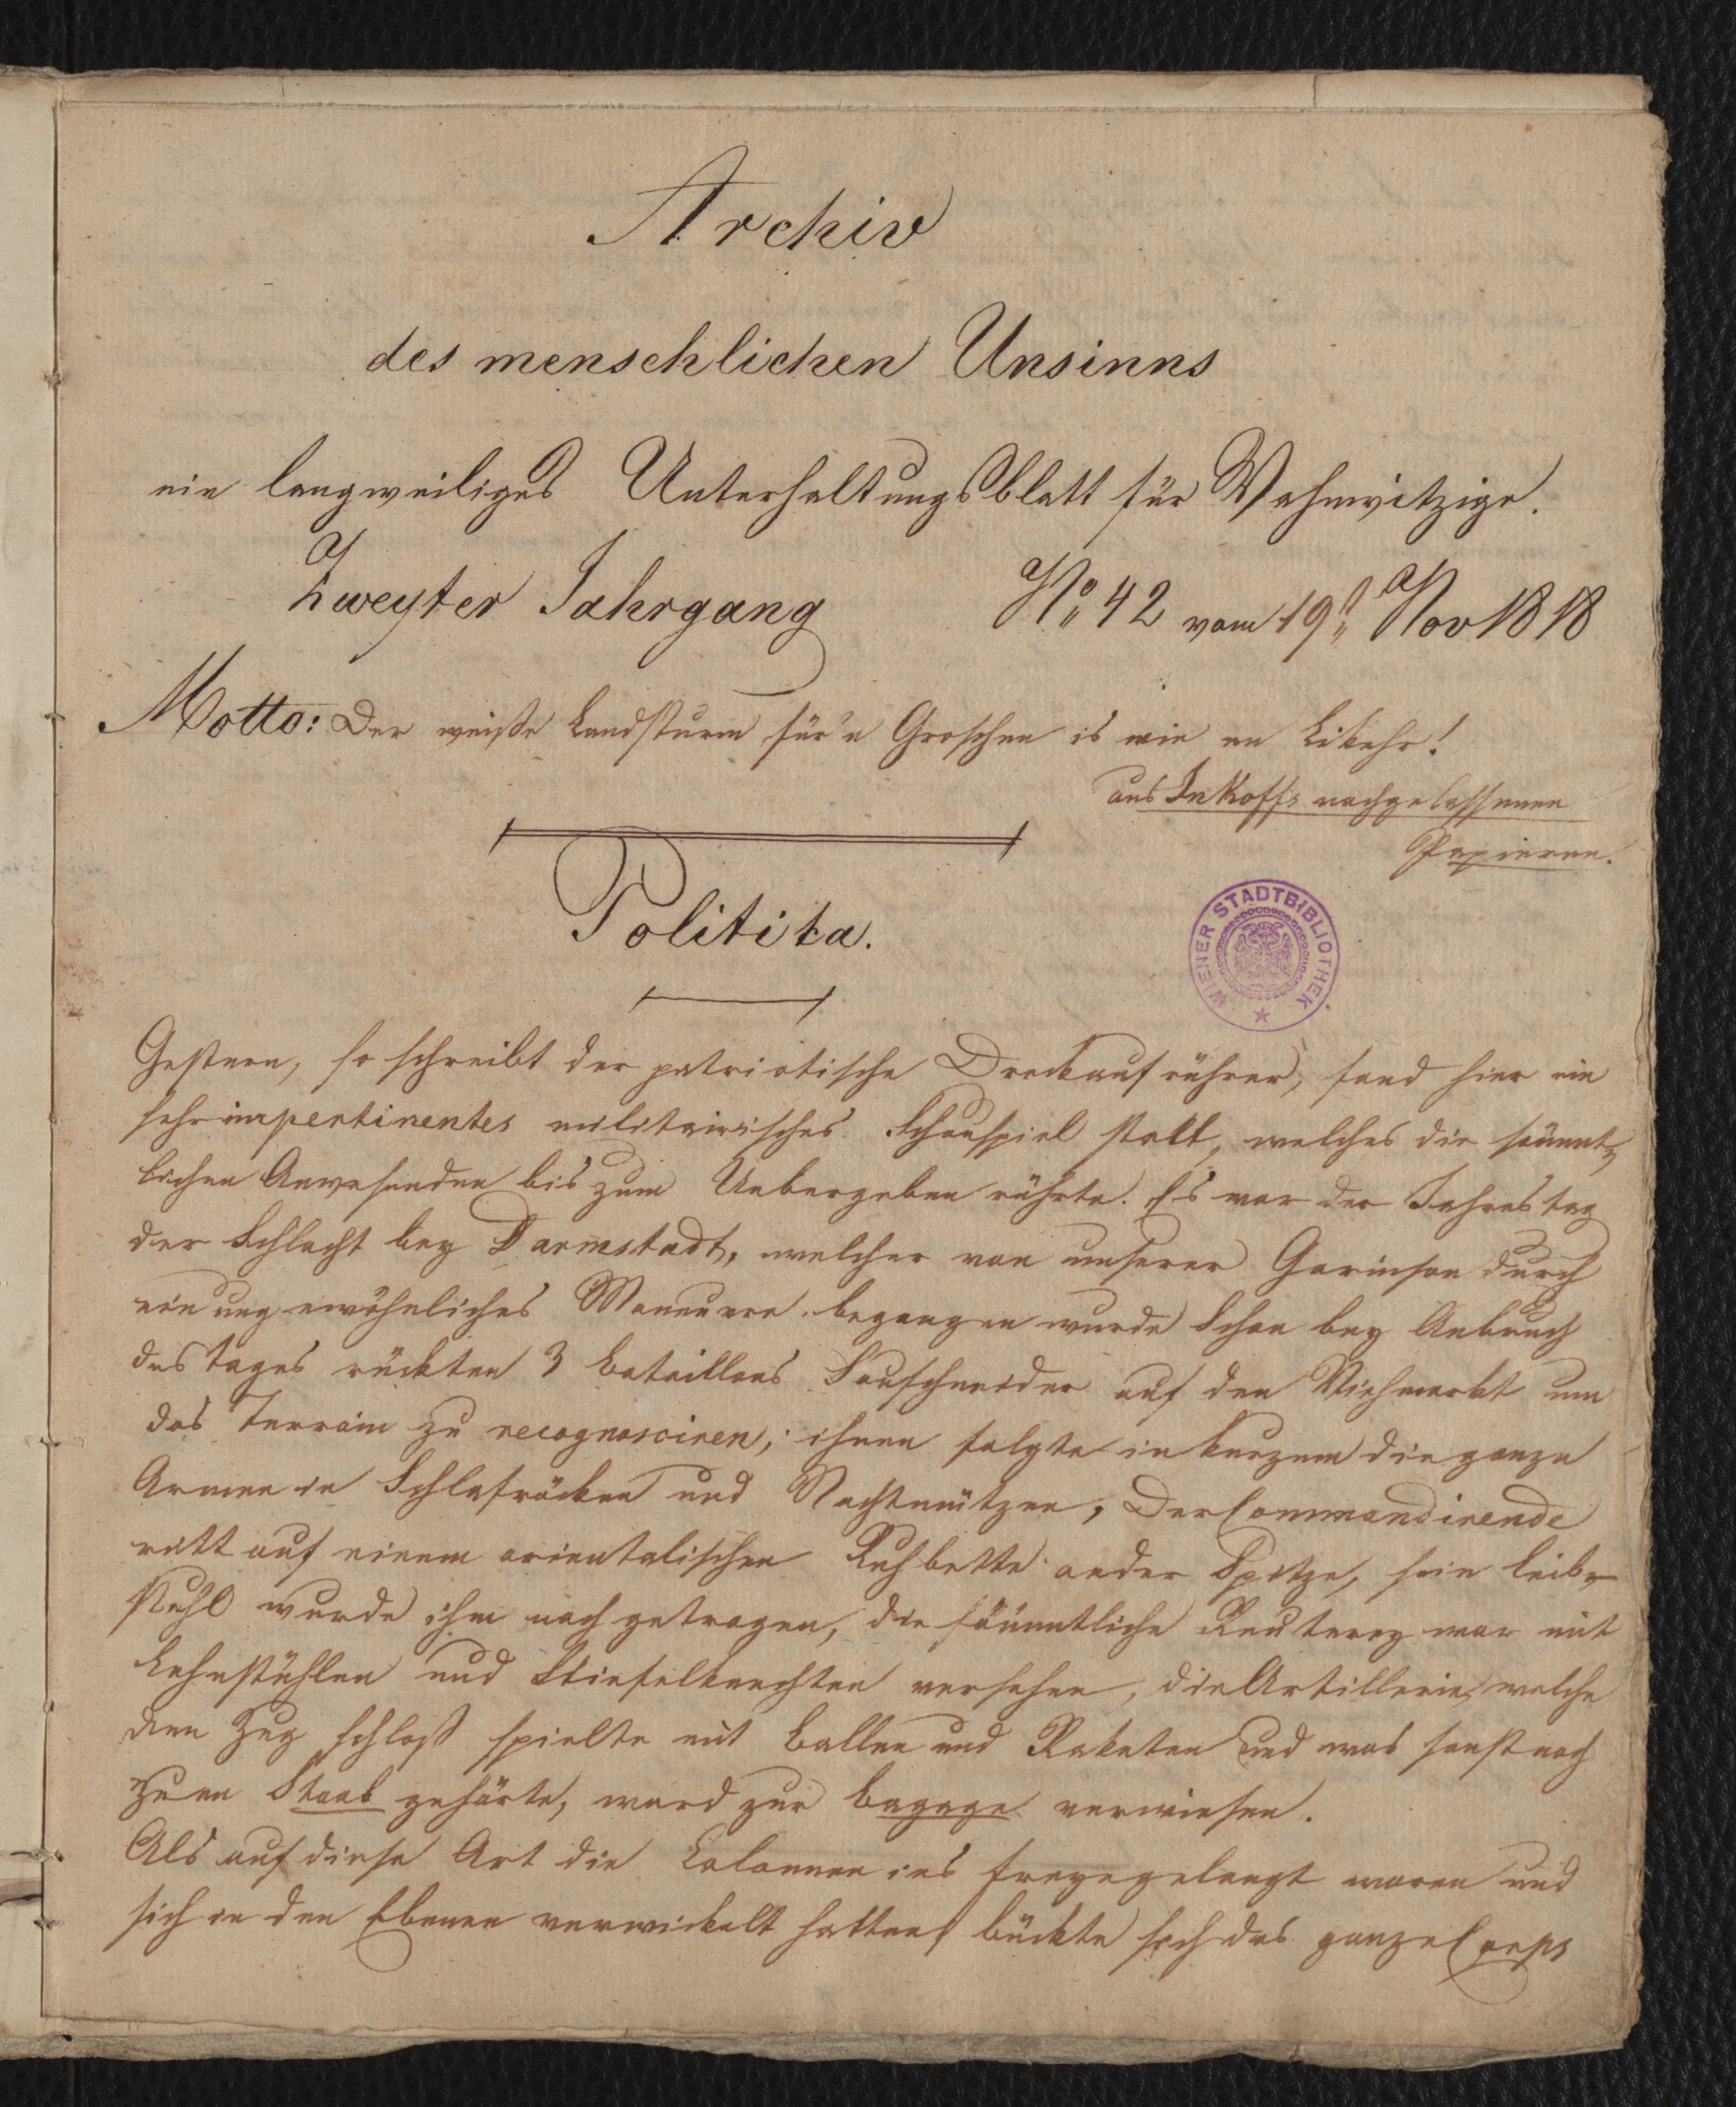 Archiv
des menschlichen Unsinns
ein langweiliges Unterhaltungsblatt für Wahnwitzige.
Zweyter Jahrgang
No 42 vom 19t Nov 1818
Motto: Der weiße Landsturm für'n Groschen is wie en Likehr!
aus Inkoffs nachgelassenen
Papieren.
Politika.
WIENER STADTBIBLIOTHEK
Gestern, so schreibt der patriotische Dreckaufrührer, fand hier ein
sehr impertinentes militairisches Schauspiel statt, welches die sämmt
lichen Anwesenden bis zum Uebergeben rührte. Es war der Jahrestag
der Schlacht bey Darmstadt, welcher von unserer Garinson durch
ein ungewöhnliches Maneuvre begangen wurde Schon bey Anbruch
des Tages rückten 3 Bataillons Sauschneider auf den Viehmarkt um
das Terrain zu recognosciren; ihnen folgte in kurzem die ganze
Armee in Schlafröcken und Nachtmützen, Der Commandirende
ritt auf einem orientalischen Ruhbette an der Spitze, sein Leib
stuhl wurde ihm nach getragen, die sämmtliche Reuterey war mit
Lehnstühlen und Stiefelknechten versehen, die Artillerie, welche
den Zug schloß spielte mit Ballen und Raketen und was sonst noch
zum Staab gehörte, ward zur Bagage verwiesen.
Als auf diese Art die Colonnen ins Freye gelangt waren und
sich in den Ebenen verwickelt hatten, bückte sich das ganze Corps